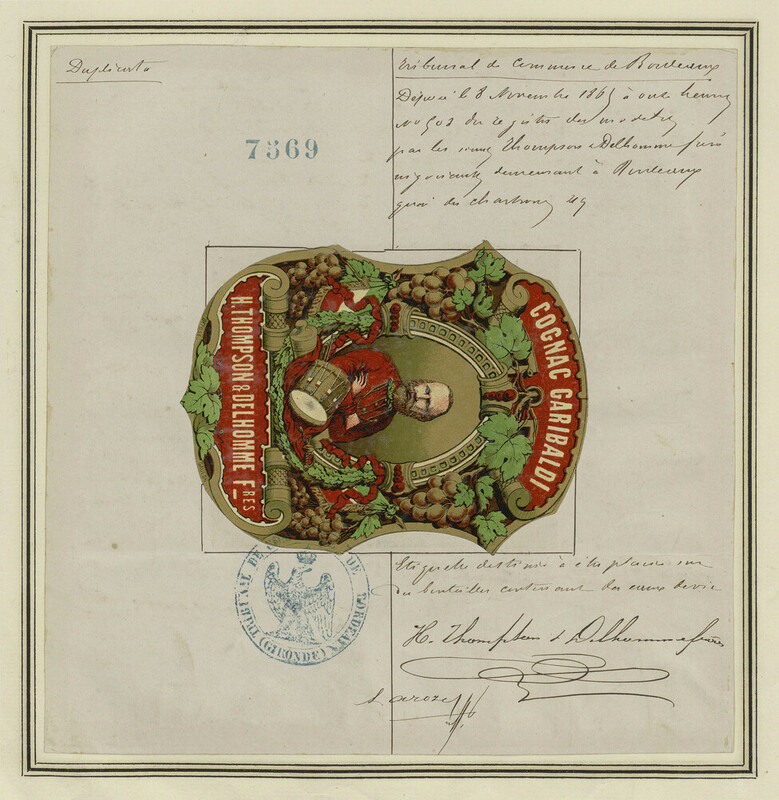 Duplicata
7369
Tribunal de Commerce de Bordeaux
Déposé le 8 Novembre 1865 à onze heures
No 503 du registre des modèles
par les sieurs Thompson & Delhomme frères
négociants demeurant à Bordeaux
quai des chartrons 49
COGNAC GARIBALDI
H. THOMPSON & DELHOMME FRES
Etiquette destinée à être placée sur
des bouteilles contenant des eaux de vie
H. Thompson & Delhomme frères
TRIBUNAL DE DE BORDEAUX
(GIRONDE)